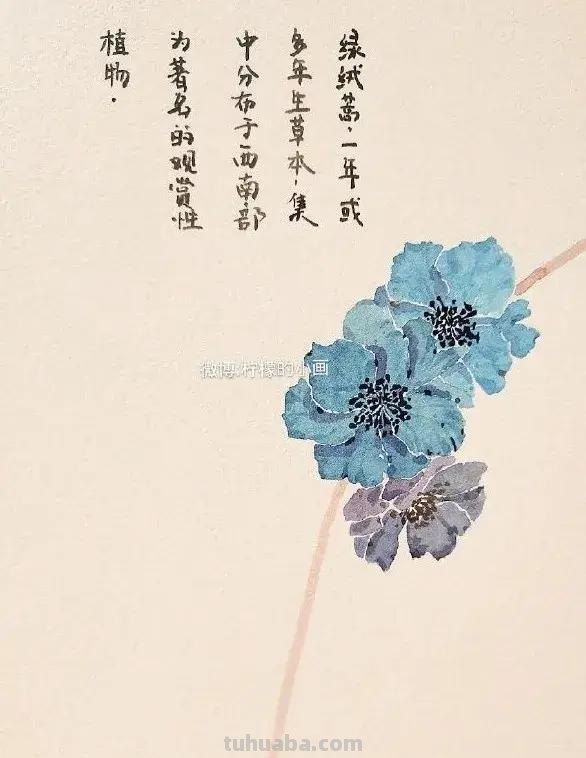 绿绒蒿,一年或
多年生草本,集
中分布于西南部
为著名的观赏性
植物.
微博:柠檬的小画
tuhuaba.com